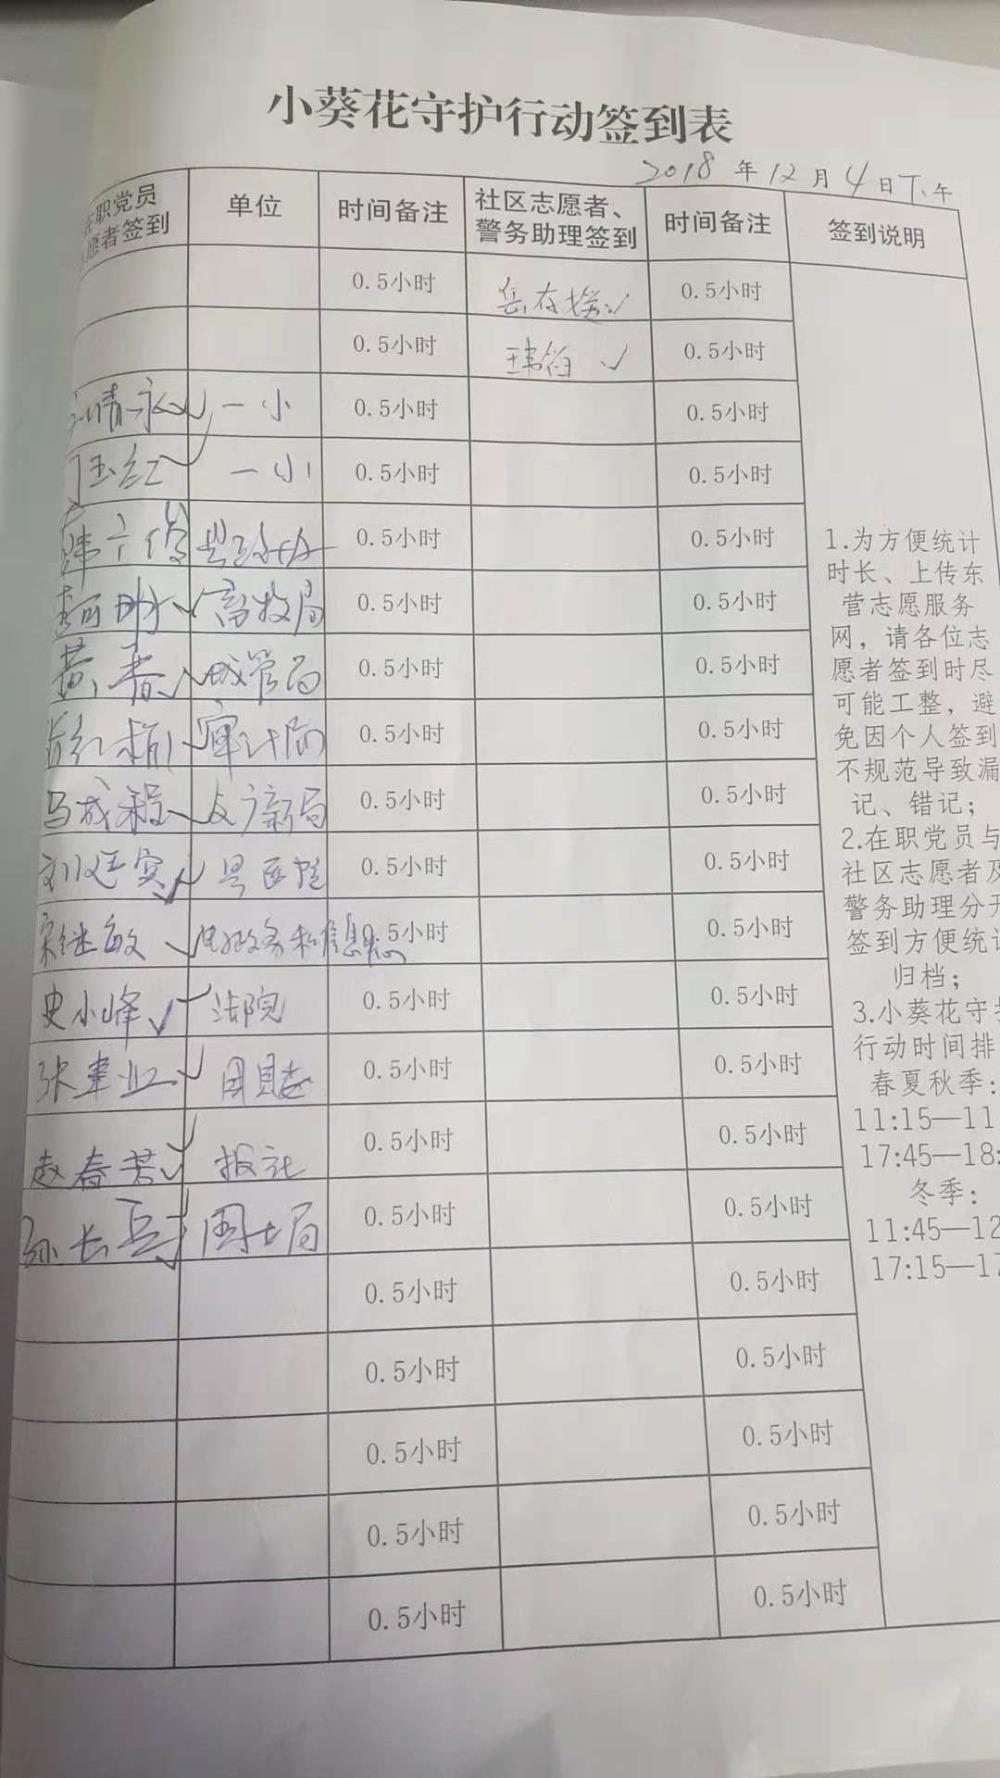 小葵花守护行动签到表
2018 年 12 月 4 日下午
在职党员
愿者签到
单位
时间备注
社区志愿者、
警务助理签到
时间备注
签到说明
0.5小时
0.5小时
0.5小时
0.5小时
一小
0.5小时
0.5小时
玉红
一小
0.5小时
0.5小时
0.5小时
0.5小时
畜牧局
0.5小时
0.5小时
黄春
城管局
0.5小时
0.5小时
审计局
0.5小时
0.5小时
马成程
文广新局
0.5小时
0.5小时
刘廷宾
县医院
0.5小时
0.5小时
宋继敏
0.5小时
0.5小时
史小峰
法院
0.5小时
0.5小时
张建业
0.5小时
0.5小时
赵春芳
报社
0.5小时
0.5小时
孙长兵
国土局
0.5小时
0.5小时
0.5小时
0.5小时
0.5小时
0.5小时
0.5小时
0.5小时
0.5小时
0.5小时
0.5小时
0.5小时
1.为方便统计
时长、上传东
营志愿服务
网，请各位志
愿者签到时尽
可能工整，避
免因个人签到
不规范导致漏
记、错记；
2.在职党员与
社区志愿者及
警务助理分开
签到方便统计
归档；
3.小葵花守护
行动时间排
春夏秋季：
11:15—11
17:45—18:
冬季：
11:45—12
17:15—17